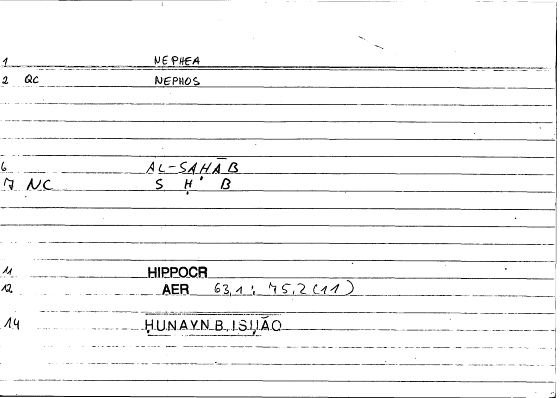 1 NEPHEA
2 QC NEPHOS
6 AL-SAḤĀB
7 NC S Ḥ B
11 HIPPOCR
12 AER 63,1 ; 75,2 (11)
14 ḤUNAYN B. ISḤĀQ